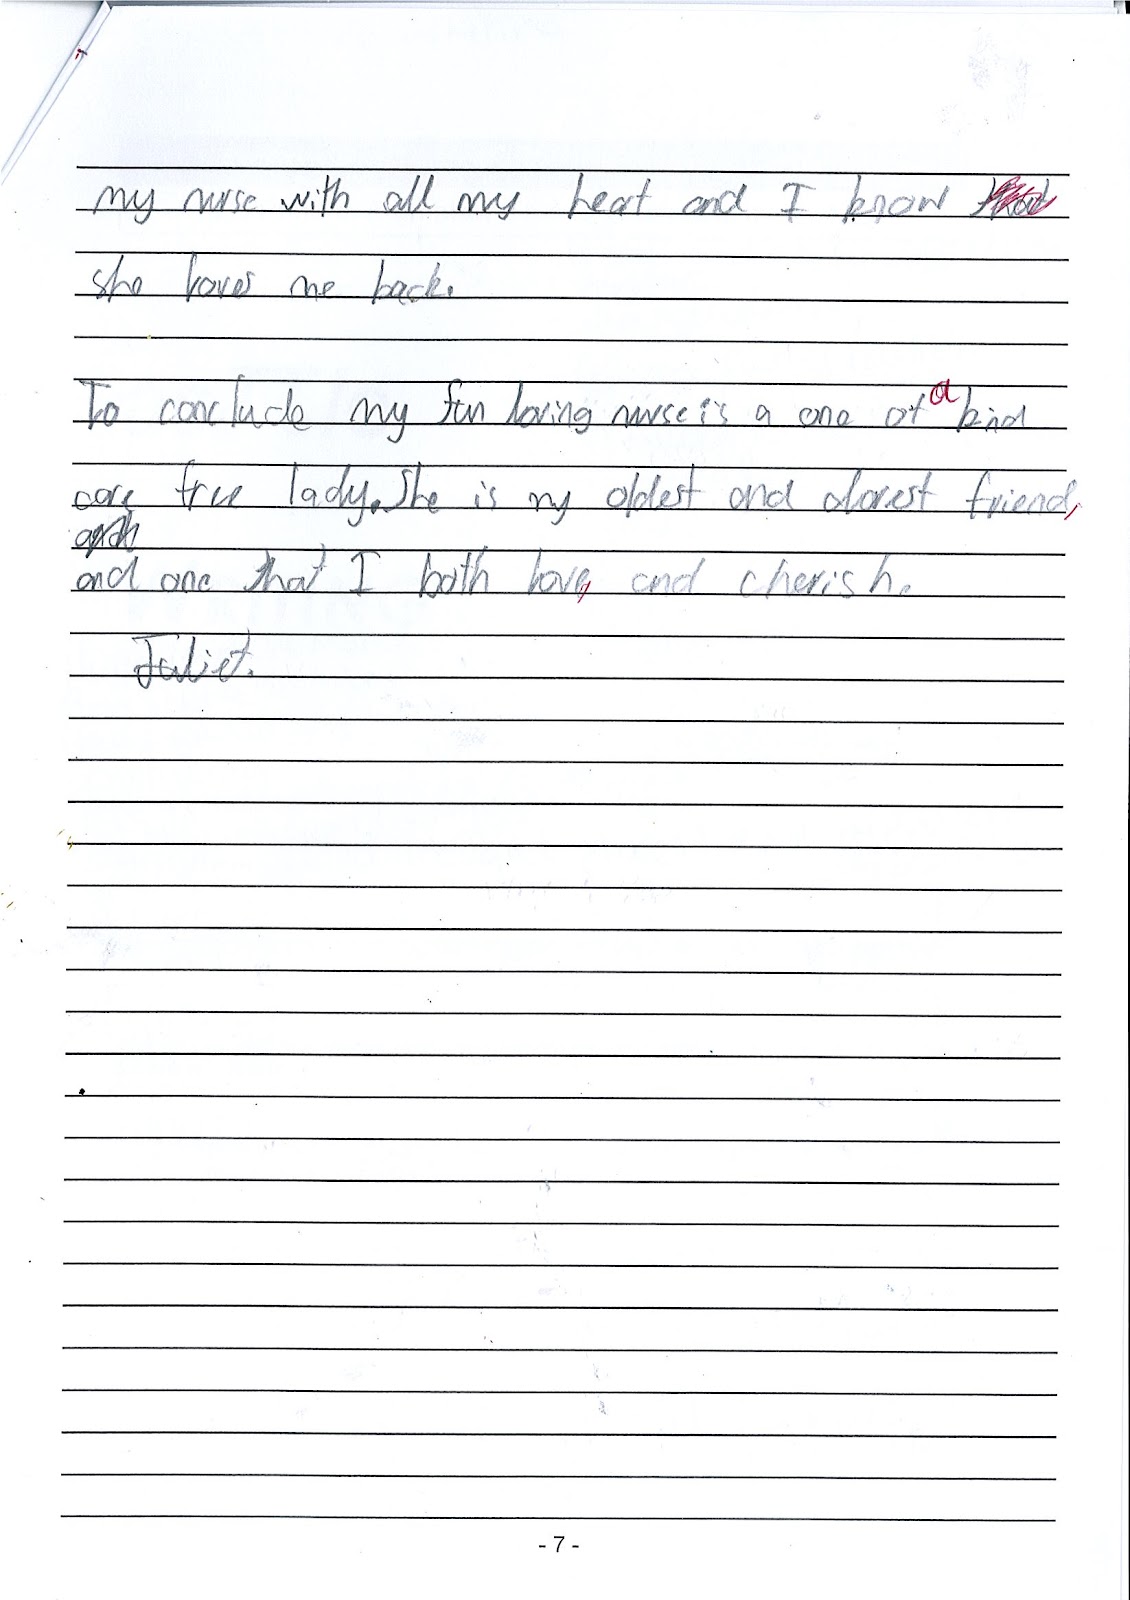 my nurse with all my heart and I know
she loves me back.
To conclude my fun loving nurse is a one of a kind
care free lady. She is my oldest and closest friend,
and one that I both love, and cherish.
Juliet.
- 7 -